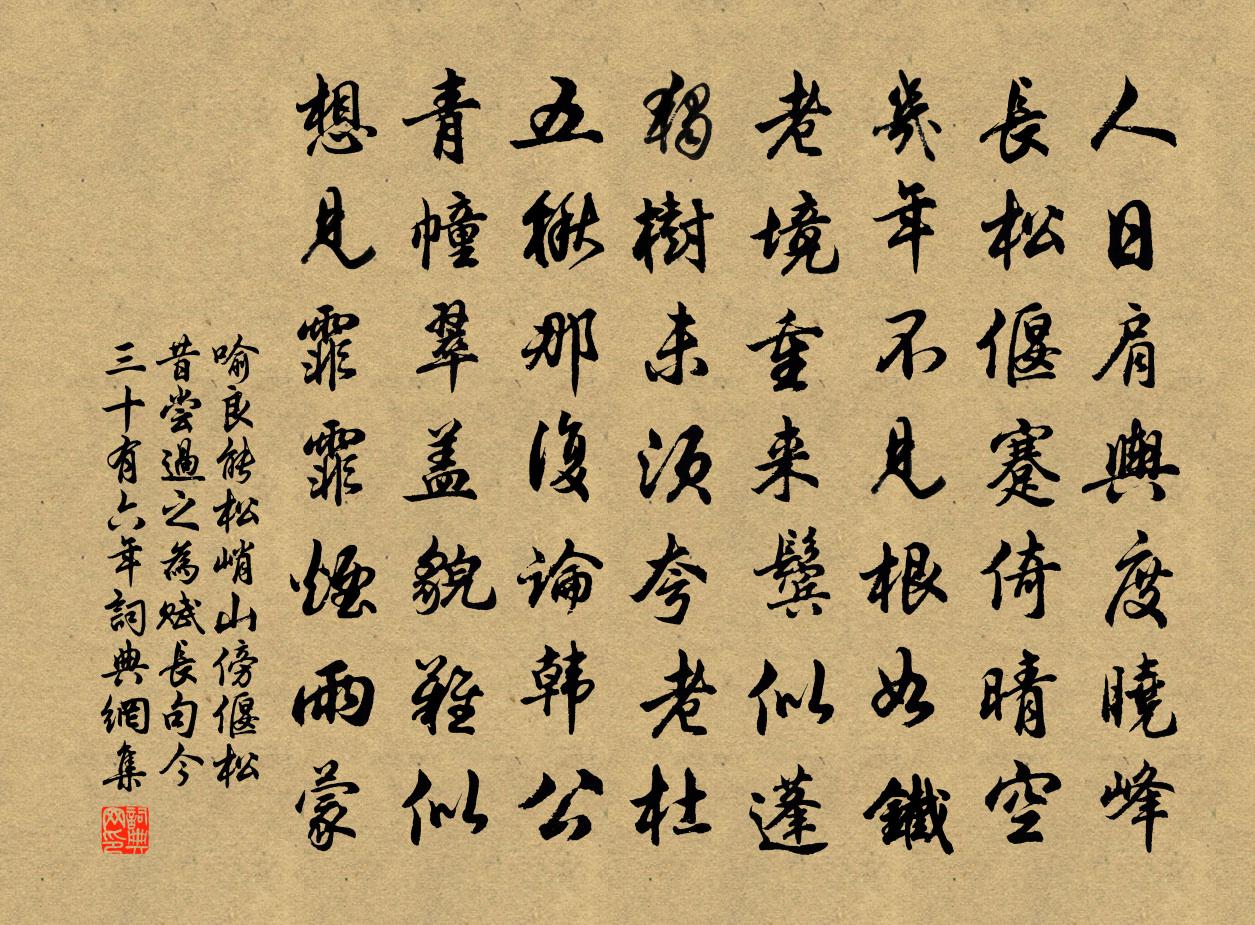 人日肩輿度曉峰
長松偃蹇倚晴空
幾年不見根如鐵
老境重来鬢似蓬
獨樹未須夸老杜
五楸那復論韩公
青幢翠盖貌難似
想見霏霏煙雨蒙
喻良能松峭山傍偃松
昔尝過之為賦長句今
三十有六年詞典網集
詞典网印